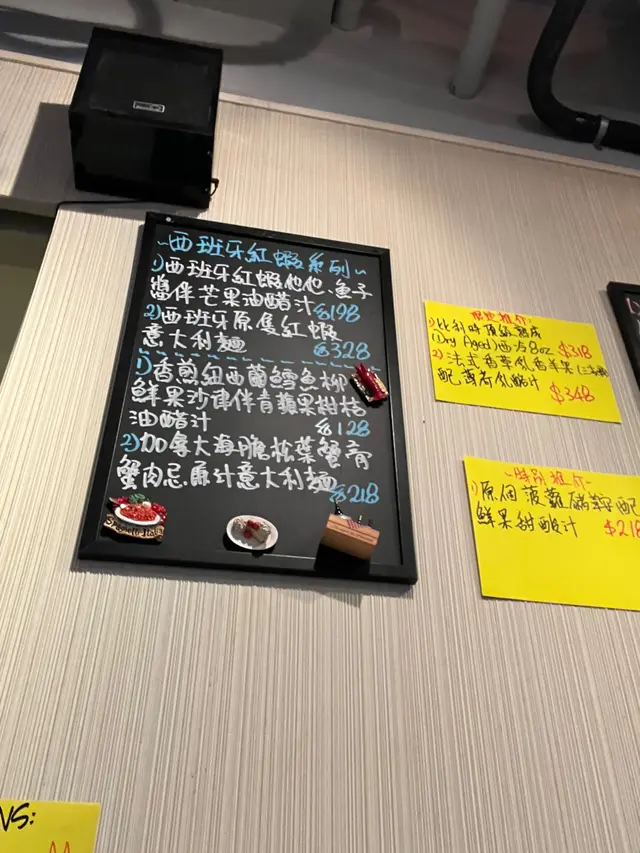 ~西班牙紅蝦系列~
1)西班牙紅蝦他他、魚子
醬伴芒果油醋汁 $198
2)西班牙原隻紅蝦
意大利麵 $328
1)香煎紐西蘭鱈魚柳
鮮果沙律伴青蘋果甜桔
油醋汁 $128
2)加拿大海膽松葉蟹膏
蟹肉忌廉汁意大利麵 $218
限定推介:
1)比利時頂級熟成
(Dry Aged)西冷8oz $318
2)法式香草乳香羊架
配薄荷乳酪汁
$348
~特別推介~
1)原個菠蘿
鮮果甜酸汁 $218
NS: